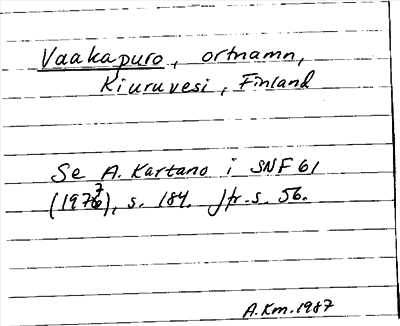 Vaakapuro, ortnamn,
Kiuruvesi, Finland
Se A. Kartano i SNF 61
(1977), s. 184. Jfr. s. 56.
A.Km. 1987